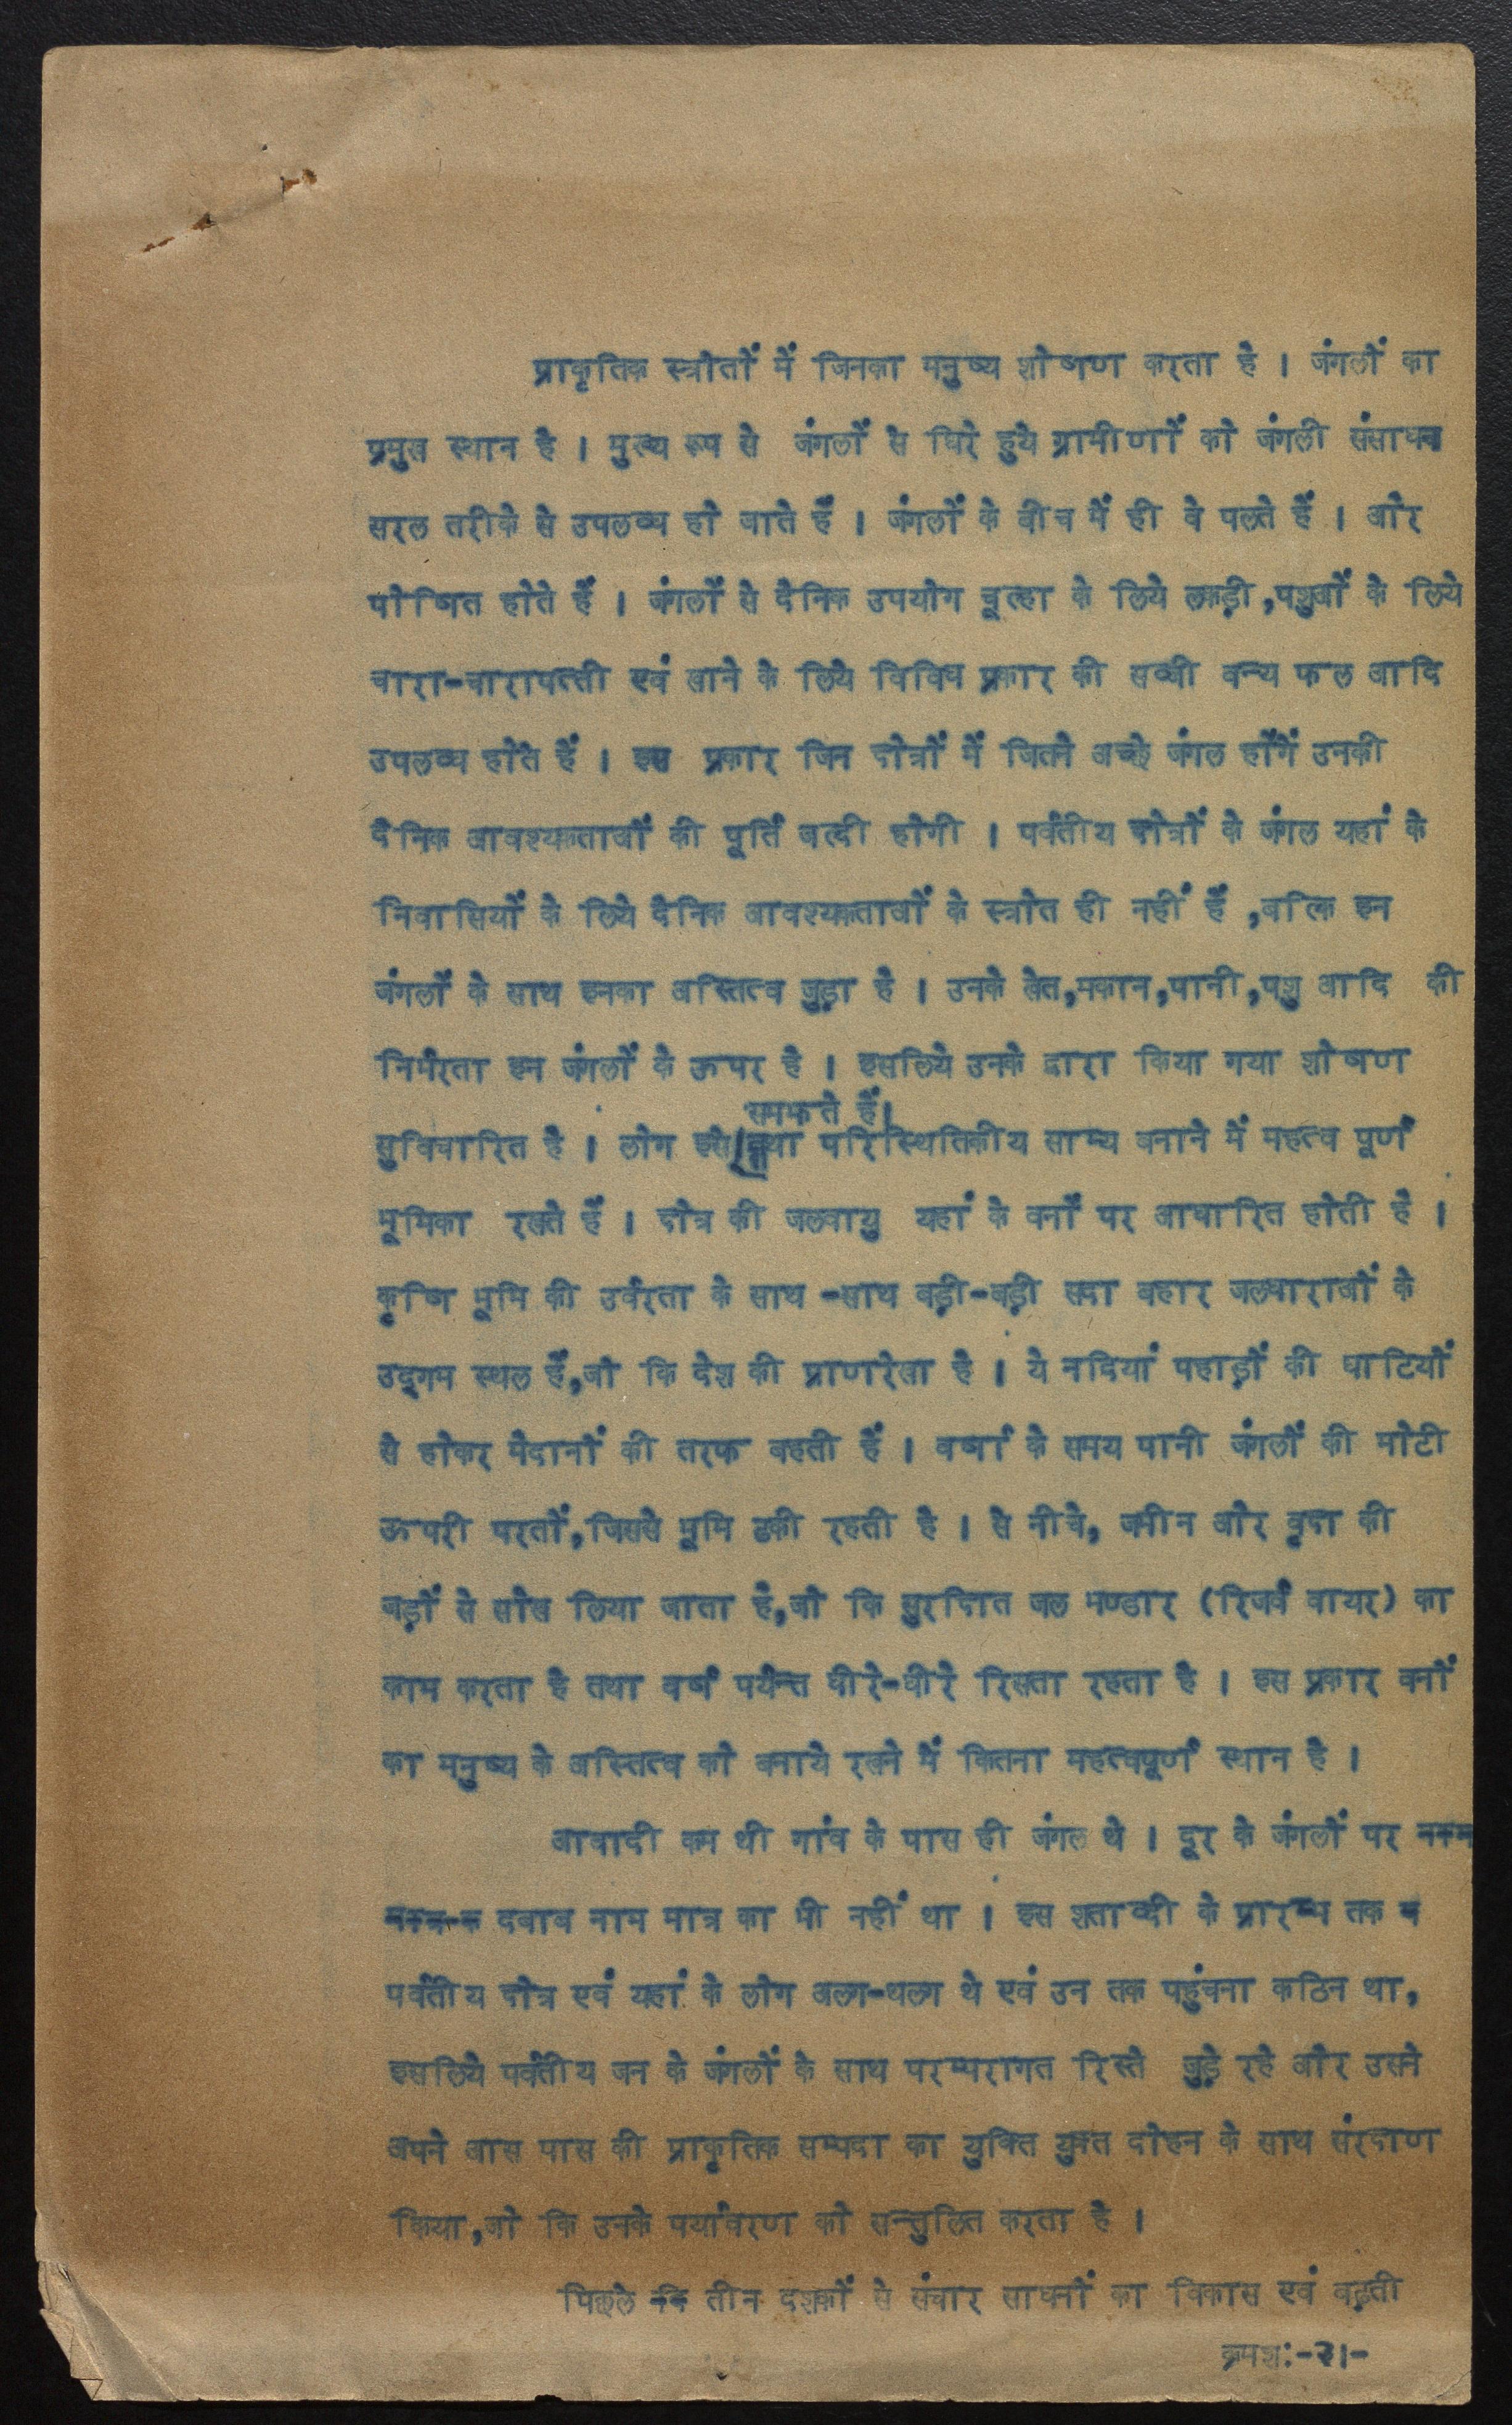 प्राकृतिक स्त्रोतों में जिनका मनुष्य शोषण करता है । जंगलों का
प्रमुख स्थान है । मुख्य रूप से जंगलों से घिरे हुये ग्रामीणों को जंगली संसाधन
सरल तरीके से उपलब्ध हो जाते हैं । जंगलों के बीच में ही वे पलते हैं । और
पोषित होते हैं । जंगलों से दैनिक उपयोग चूल्हा के लिये लकड़ी,पशुवों के लिये
चारा-चारापत्ती एवं खाने के लिये विविध प्रकार की सब्जी वन्य फल आदि
उपलब्ध होते हैं । इस प्रकार जिन क्षेत्रों में जितने अच्छे जंगल होंगें उनकी
दैनिक आवश्यकताओं की पूर्ति जल्दी होगी । पर्वतीय क्षेत्रों के जंगल यहां के
निवासियों के लिये दैनिक आवश्यकताओं के स्त्रोत ही नहीं हैं ,बल्कि इन
जंगलों के साथ इनका अस्तित्व जुड़ा है । उनके खेत,मकान,पानी,पशु आदि की
निर्भरता इन जंगलों के ऊपर है । इसलिये उनके द्वारा किया गया शोषण
समझते हैं।
सुविचारित है । लोग इसे तथा परिस्थितिकीय साम्य बनाने में महत्व पूर्ण
भूमिका रखते हैं । क्षेत्र की जलवायु यहां के वनों पर आधारित होती है ।
कृषि भूमि की उर्वरता के साथ -साथ बड़ी-बड़ी सदा बहार जलधाराओं के
उद्गम स्थल हैं,जो कि देश की प्राणरेखा है । ये नदियां पहाड़ों की घाटियों
से होकर मैदानों की तरफ बहती हैं । वर्षा के समय पानी जंगलों की मोटी
ऊपरी परतों,जिससे भूमि ढकी रहती है । से नीचे, जमीन और वृक्ष की
जड़ों से सोख लिया जाता है,जो कि सुरक्षित जल भण्डार (रिजर्व वायर) का
काम करता है तथा वर्ष पर्यन्त धीरे-धीरे रिसता रहता है । इस प्रकार वनों
का मनुष्य के अस्तित्व को बनाये रखने में कितना महत्वपूर्ण स्थान है ।
आबादी कम थी गांव के पास ही जंगल थे । दूर के जंगलों पर
दबाब नाम मात्र का भी नहीं था । इस शताब्दी के प्रारम्भ तक
पर्वतीय क्षेत्र एवं यहां के लोग अलग-थलग थे एवं उन तक पहुंचना कठिन था,
इसलिये पर्वतीय जन के जंगलों के साथ परम्परागत रिस्ते जुड़े रहे और उसने
अपने आस पास की प्राकृतिक सम्पदा का युक्ति युक्त दोहन के साथ संरक्षण
किया,जो कि उनके पर्यावरण को सन्तुलित करता है ।
पिछले तीन दशकों से संचार साधनों का विकास एवं बढ़ती
क्रमश:-२।-